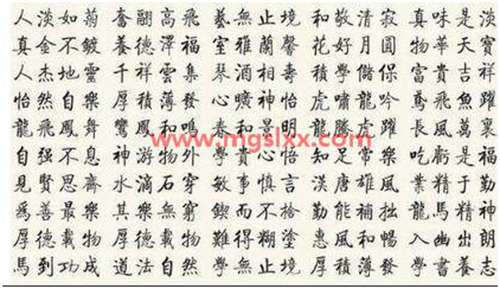 人淡如菊 奮翮高飛 藝無止境 和敬清寂 真味是淡
真金不鍍 養德澤福 室雅蘭馨 花好月圓 物華天寶
人杰地靈 千祥雲集 富貴吉祥
怡然自樂 厚積薄發 心曠神怡 虎嘯龍吟 鳶飛魚躍
龍飛鳳舞 鸞鳳和鳴 春和景明 龍騰虎躍 長風萬里
www.mgslxx.com
自强不息 神游物外 學貴心悟 知足常樂 吃虧是福
見賢思齊 水滴石穿 敏事慎言 漢唐雄風 業精于勤
為善最樂 其樂無窮 鍥而不捨 勤能補拙 龍馬精神
厚德載物 厚德載物 難得糊塗 惠風和暢 入幽出朗
馬到功成 道法自然 學無止境 厚積薄發 學書養志